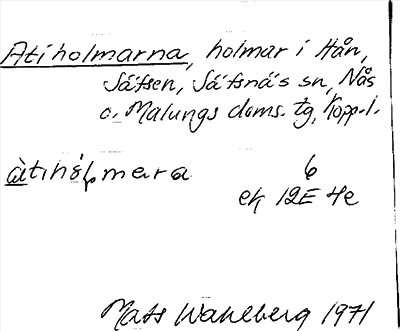 Atiholmarna, holmar i Hån,
Säfsen, Säfsnäs sn, Nås
o. Malungs doms. tg, Kopp. l.
àtihó̀ɭmara 6
ek 12E 4e
Mats Wahlberg 1971